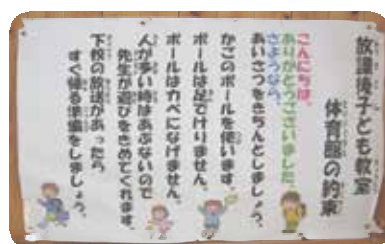 放課後子ども教室
体育館の約束
こんにちは、
ありがとうございました、
さようなら、
あいさつをきちんとしましょう。
かごのボールを使います。
ボールは足でけりません。
ボールはカベになげません。
人が多い時はあぶないので
先生が遊びをきめてくれます。
下校の放送があったら
すぐ帰る準備をしましょう。